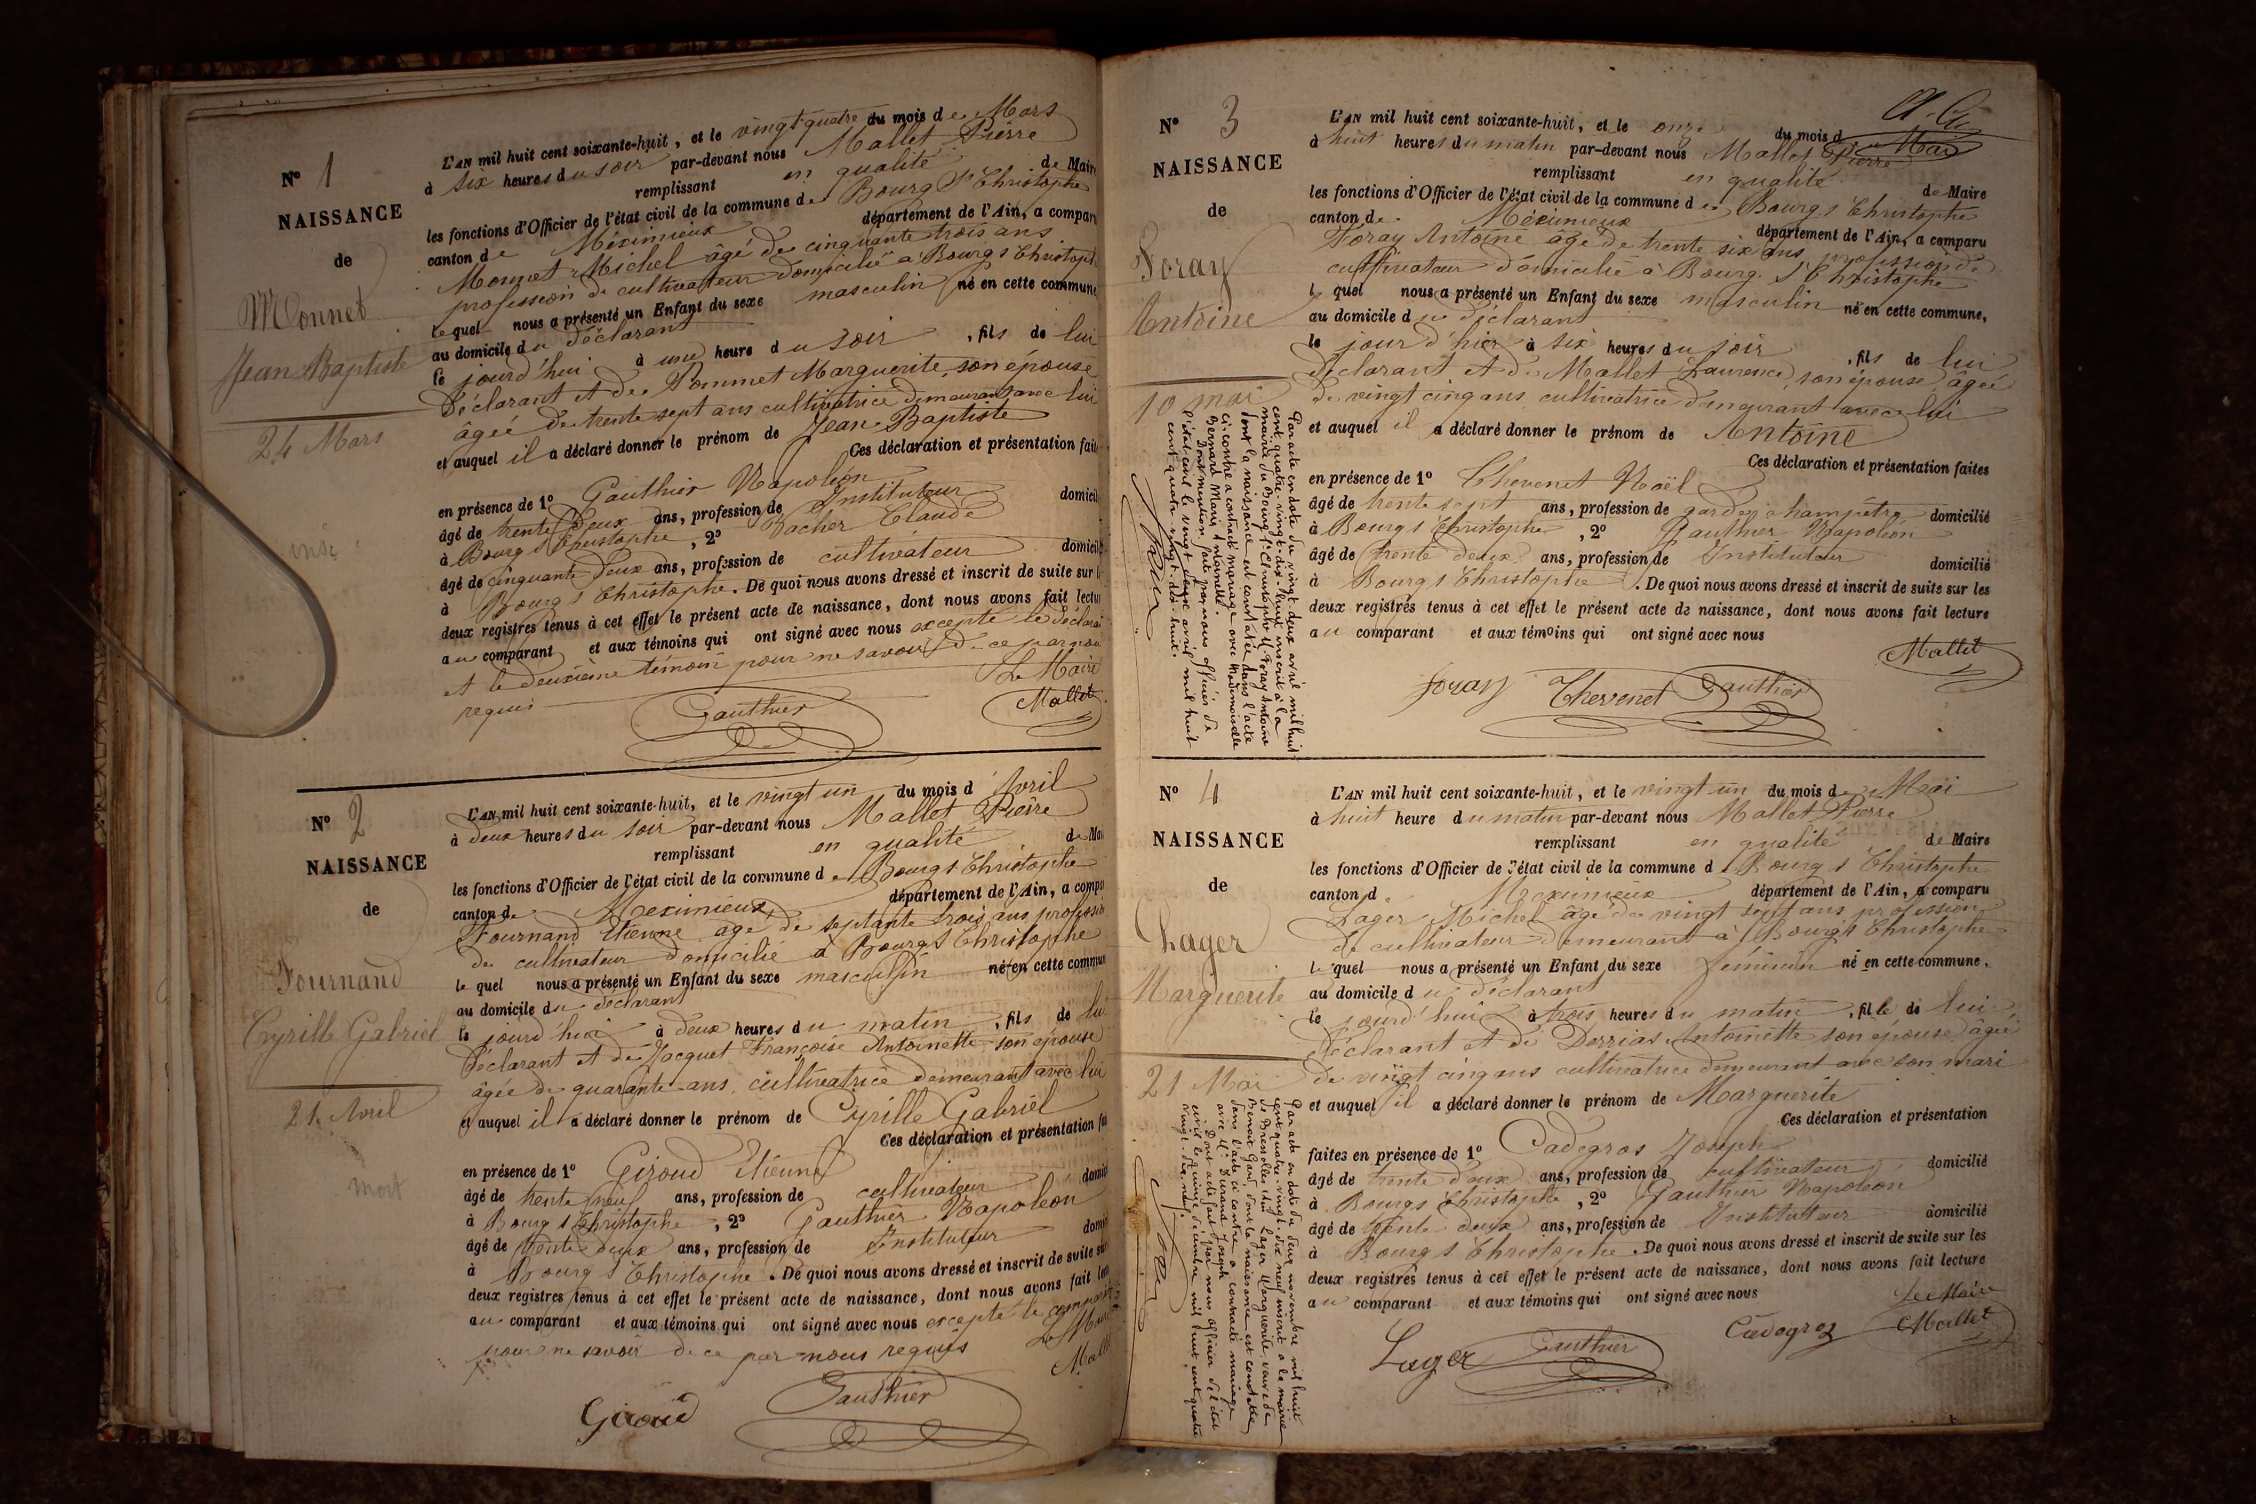 N° 1
NAISSANCE
de
Monnet
Jean Baptiste
24 Mars
L'AN mil huit cent soixante-huit, et le vingt quatre du mois de Mars
à six heures du soir par-devant nous Mallet Pierre
remplissant en qualité de Maire
les fonctions d'Officier de l'état civil de la commune de Bourg St Christophe
canton de Méximieux département de l'Ain, a compar
Monnet Michel âgé de cinquante trois ans
profession de cultivateur domicilié à Bourg St Christophe
lequel nous a présenté un Enfant du sexe masculin né en cette commune
au domicile du déclarant
le jourd'hui à une heure du soir, fils de lui
déclarant et de Pommet Marguerite, son épouse
âgée de trente sept ans cultivatrice demeurant avec lui
et auquel il a déclaré donner le prénom de Jean Baptiste
Ces déclaration et présentation fait
en présence de 1° Gauthier Napoléon
âgé de trente deux ans, profession de Instituteur domicil
à Bourg St Christophe, 2° Vacher Claude
âgé de cinquante deux ans, profession de cultivateur domicil
à Bourg St Christophe. De quoi nous avons dressé et inscrit de suite sur l
deux registres tenus à cet effet le présent acte de naissance, dont nous avons fait lectu
au comparant et aux témoins qui ont signé avec nous excepté le déclara
et le deuxième témoin pour ne savoir de ce par nous
requis Le Maire
Gauthier Mallet
N° 2
NAISSANCE
de
Fournand
Cyrille Gabriel
21 Avril
mort
L'AN mil huit cent soixante-huit, et le vingt un du mois d'Avril
à deux heures du soir par-devant nous Mallet Pierre
remplissant en qualité de Mai
les fonctions d'Officier de l'état civil de la commune de Bourg St Christophe
canton de Meximieux département de l'Ain, a compa
Fournand Etienne âgé de septante trois ans profession
de cultivateur domicilié à Bourg St Christophe
lequel nous a présenté un Enfant du sexe masculin né en cette commun
au domicile du déclarant
le jourd'hui à deux heures du matin, fils de lui
déclarant et de Jacquet Françoise Antoinette son épouse
âgée de quarante ans, cultivatrice demeurant avec lui
et auquel il a déclaré donner le prénom de Cyrille Gabriel
Ces déclaration et présentation fai
en présence de 1° Giroud Etienne
âgé de trente neuf ans, profession de cultivateur domici
à Bourg St Christophe, 2° Gauthier Napoléon
âgé de trente deux ans, profession de Instituteur domi
à Bourg St Christophe. De quoi nous avons dressé et inscrit de suite sur
deux registres tenus à cet effet le présent acte de naissance, dont nous avons fait lect
au comparant et aux témoins qui ont signé avec nous excepté le comparant
pour ne savoir de ce par nous requis Le Maire
Mallet
Giroud Gauthier
N° 3
NAISSANCE
de
Foray
Antoine
10 mai
Par acte en date du vingt-deux avril mil huit
cent quatre-vingt-dix-huit inscrit à la
mairie du Bourg St Christophe M. Foray Antoine
dont la naissance est constatée dans l'acte
ci-contre a contracté mariage avec Mademoiselle
Bernard Marie Antoinette.
Dont mention faite par nous officier de
l'état civil le vingt-deux avril mil huit
cent quatre-vingt-dix-huit.
L'AN mil huit cent soixante-huit, et le onze du mois de Mai
à huit heures du matin par-devant nous Mallet Pierre
remplissant en qualité de Maire
les fonctions d'Officier de l'état civil de la commune de Bourg St Christophe
canton de Méximieux département de l'Ain, a comparu
Foray Antoine âgé de trente six ans profession de
cultivateur domicilié à Bourg St Christophe
lequel nous a présenté un Enfant du sexe masculin né en cette commune,
au domicile du déclarant
le jour d'hier à six heures du soir, fils de lui
déclarant et de Mallet Laurence, son épouse âgée
de vingt cinq ans cultivatrice demeurant avec lui
et auquel il a déclaré donner le prénom de Antoine
Ces déclaration et présentation faites
en présence de 1° Thevenet Noël
âgé de trente sept ans, profession de garde champêtre domicilié
à Bourg St Christophe, 2° Gauthier Napoléon
âgé de trente deux ans, profession de Instituteur domicilié
à Bourg St Christophe. De quoi nous avons dressé et inscrit de suite sur les
deux registres tenus à cet effet le présent acte de naissance, dont nous avons fait lecture
au comparant et aux témoins qui ont signé avec nous
Mallet
foray Thevenet Gauthier
N° 4
NAISSANCE
de
Lager
Marguerite
21 Mai
Par acte en date du deux novembre mil huit
cent quatre-vingt-dix neuf inscrit à la mairie
de Bressolles (Ain) Lager Marguerite, veuve de
Benoit Gard, dont la naissance est constatée
dans l'acte ci contre a contracté mariage
avec M. Durand Joseph
Dont acte fait par nous officier de l'état
civil le quinze décembre mil huit cent quatre
vingt-dix-neuf.
L'AN mil huit cent soixante-huit, et le vingt un du mois de Mai
à huit heure du matin par-devant nous Mallet Pierre
remplissant en qualité de Maire
les fonctions d'Officier de l'état civil de la commune d Bourg St Christophe
canton d Meximieux département de l'Ain, a comparu
Lager Michel âgé de vingt sept ans profession
de cultivateur demeurant à Bourg St Christophe
lequel nous a présenté un Enfant du sexe féminin né en cette commune,
au domicile du déclarant
le jourd'hui à trois heures du matin, fille de lui
déclarant et de Derrias Antoinette son épouse âgée
de vingt cinq ans cultivatrice demeurant avec son mari
et auquel il a déclaré donner le prénom de Marguerite
Ces déclaration et présentation
faites en présence de 1° Cadegros Joseph
âgé de trente deux ans, profession de cultivateur domicilié
à Bourg St Christophe, 2° Gauthier Napoléon
âgé de trente deux ans, profession de Instituteur domicilié
à Bourg St Christophe. De quoi nous avons dressé et inscrit de suite sur les
deux registres tenus à cet effet le présent acte de naissance, dont nous avons fait lecture
au comparant et aux témoins qui ont signé avec nous
Le Maire
Lager Gauthier Cadegros Mallet